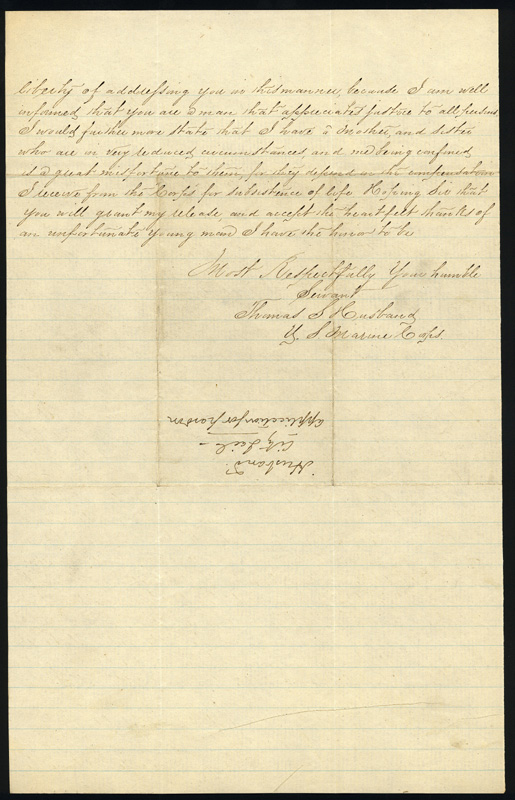 liberty of addressing you in this manner, because I am well
informed, that you are a man that appreciates justice to all persons
I would further more state that I have a Mother, and sister
who are in very reduced circumstances, and me being confined
is a great misfortune to them, for they depend on the compensation
I receive from the Corps for subsistence of life Hoping Sir that
you will grant my release, and accept the heartfelt thanks of
an unfortunate young man I have the honor to be
Most Respectfully Your humble
Servant
Thomas S Husband
U. S Marine Corps.
Husband
City Jail -
application for pardon